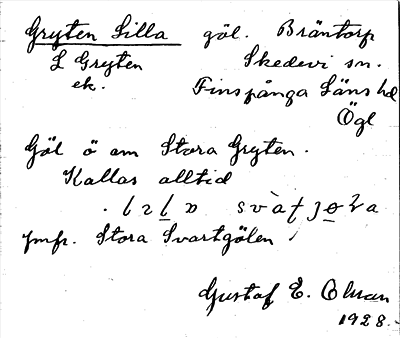 Gryten Lilla göl. Bräntorp
L Gryten Skedevi sn.
ek. Finspånga Läns hd
Ögl
Göl ö om Stora Gryten.
Kallas alltid
Jmfr. Stora Svartgölen
Gustaf E. Olsson
1928.